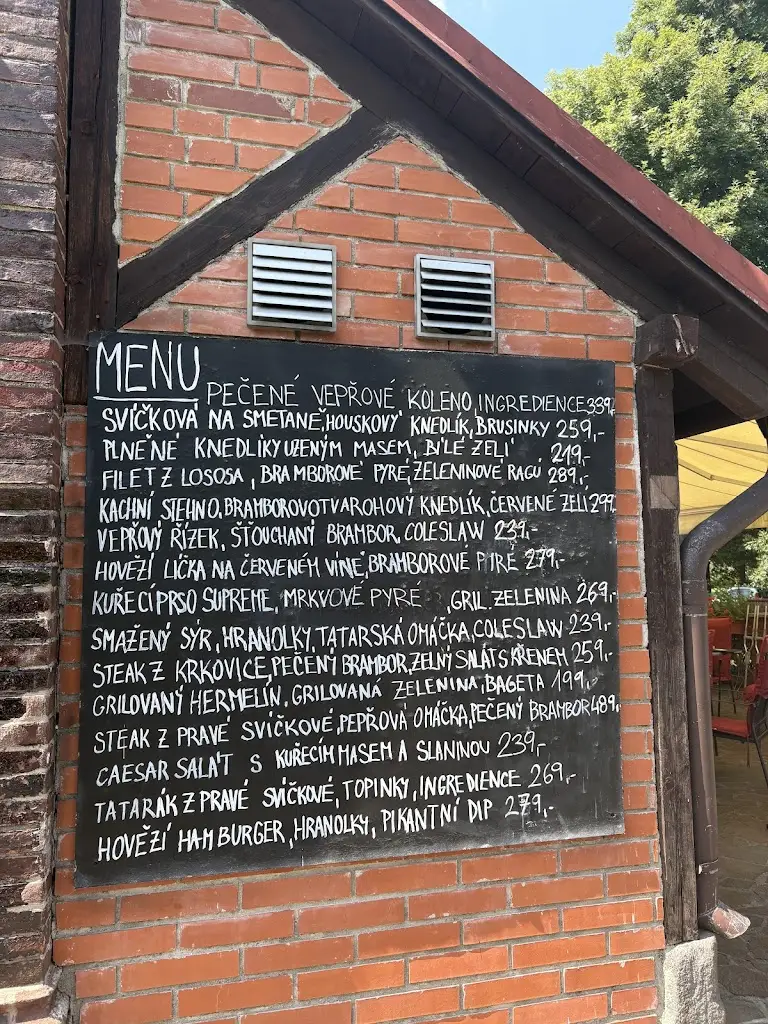 MENU
PEČENÉ VEPŘOVÉ KOLENO, INGREDIENCE 339,-
SVÍČKOVÁ NA SMETANĚ, HOUSKOVÝ KNEDLÍK, BRUSINKY 259,-
PLNĚNÉ KNEDLÍKY UZENÝM MASEM, BÍLÉ ZELÍ 219,-
FILET Z LOSOSA, BRAMBOROVÉ PYRÉ, ZELENINOVÉ RAGÚ 289,-
KACHNÍ STEHNO, BRAMBOROVOTVAROHOVÝ KNEDLÍK, ČERVENÉ ZELÍ 299,-
VEPŘOVÝ ŘÍZEK, ŠŤOUCHANÝ BRAMBOR, COLESLAW 239,-
HOVĚZÍ LÍČKA NA ČERVENÉM VÍNĚ, BRAMBOROVÉ PYRÉ 279,-
KUŘECÍ PRSO SUPREME, MRKVOVÉ PYRÉ, GRIL. ZELENINA 269,-
SMAŽENÝ SÝR, HRANOLKY, TATARSKÁ OMÁČKA, COLESLAW 239,-
STEAK Z KRKOVICE, PEČENÝ BRAMBOR, ZELNÝ SALÁT S KŘENEM 259,-
GRILOVANÝ HERMELÍN, GRILOVANÁ ZELENINA, BAGETA 199,-
STEAK Z PRAVÉ SVÍČKOVÉ, PEPŘOVÁ OMÁČKA, PEČENÝ BRAMBOR 489,-
CAESAR SALÁT S KUŘECÍM MASEM A SLANINOU 239,-
TATARÁK Z PRAVÉ SVÍČKOVÉ, TOPINKY, INGREDIENCE 269,-
HOVĚZÍ HAMBURGER, HRANOLKY, PIKANTNÍ DIP 279,-